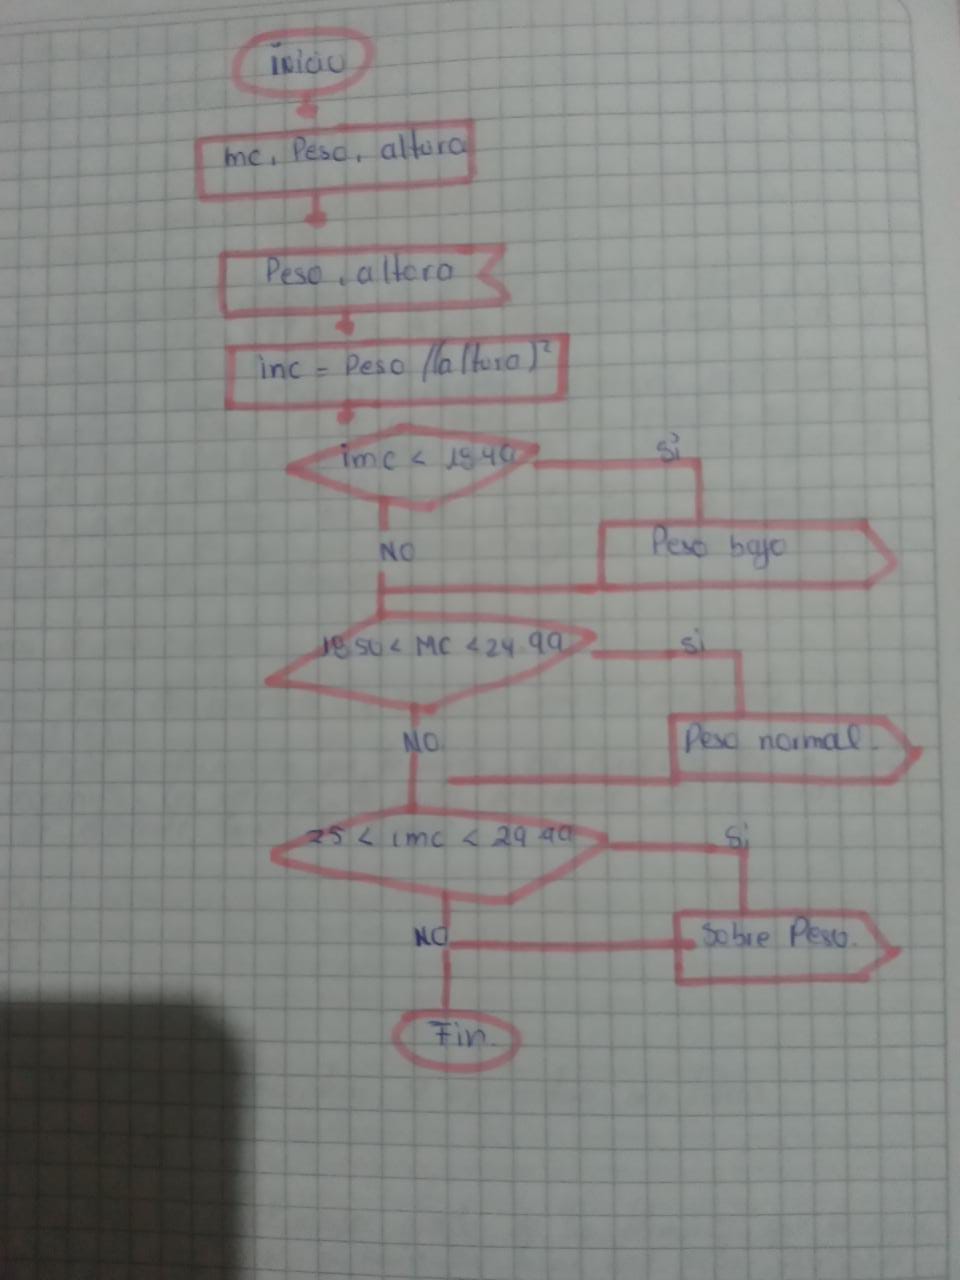 inicio
mc, Peso, altura
Peso, altura
inc = Peso /(altura)²
imc < 18.49
Si
Peso bajo
NO
18.50 < MC < 24.99
Si
Peso normal.
NO
25 < imc < 29.99
Si
Sobre Peso.
NO
Fin.